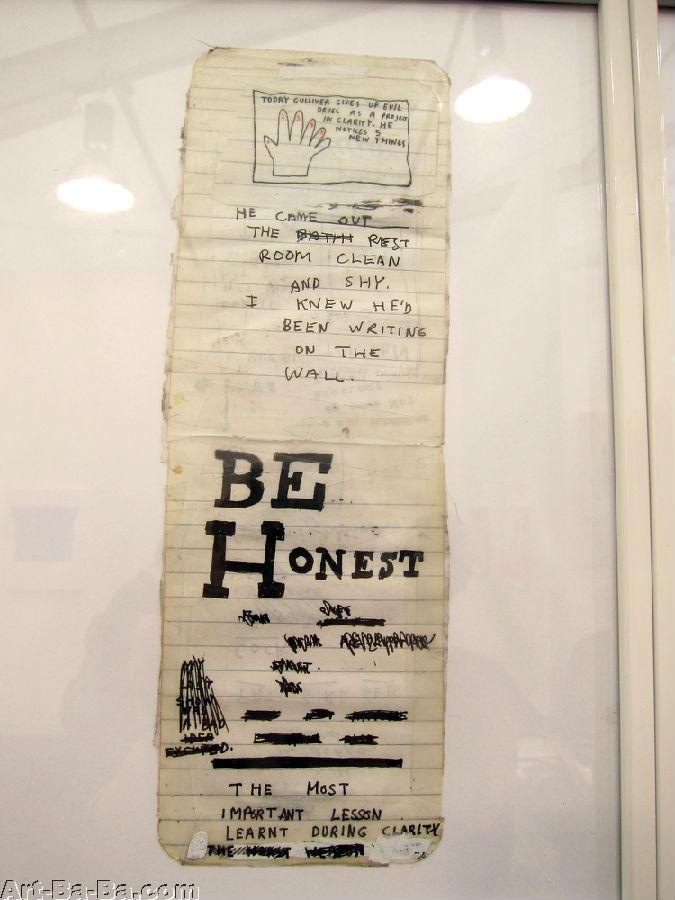 TODAY GULLIVER GIVES UP EVIL
DRUGS AS A PROJECT
IN CLARITY. HE
NOTICES 5
NEW THINGS
HE CAME OUT
THE BATH REST
ROOM CLEAN
AND SHY.
I KNEW HE'D
BEEN WRITING
ON THE
WALL.
BE
HONEST
THE MOST
IMPORTANT LESSON
LEARNT DURING CLARITY
Art-Ba-Ba.com